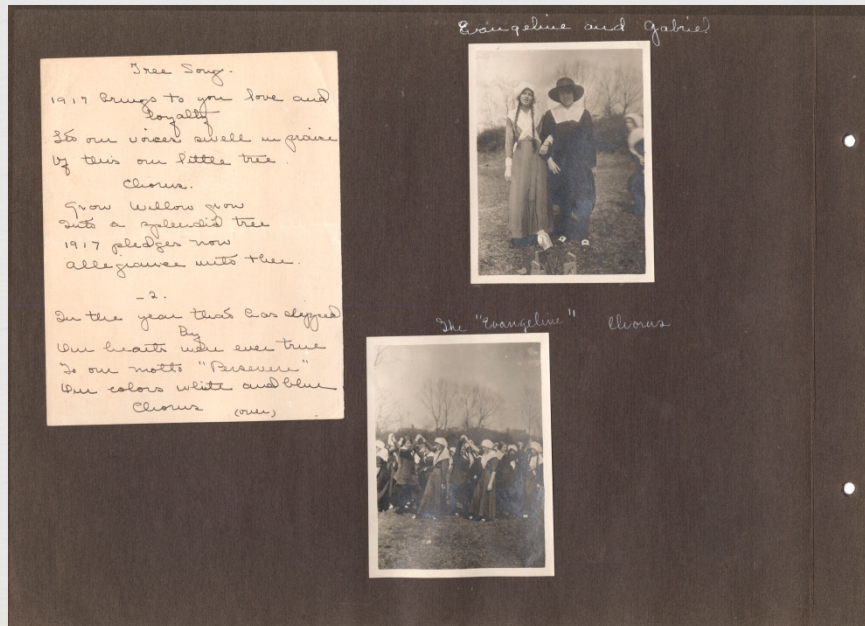 Tree Song.
1917 brings to you love and
loyalty
Let our voices swell in praise
Of this our little tree.
Chorus.
Grow Willow grow
Into a splendid tree
1917 pledges now
allegiance unto thee.
- 2.
In the year that has slipped
By
Our hearts were ever true
To our motto "Persevere"
Our colors white and blue
Chorus (over)
Evangeline and Gabriel
The "Evangeline" Chorus